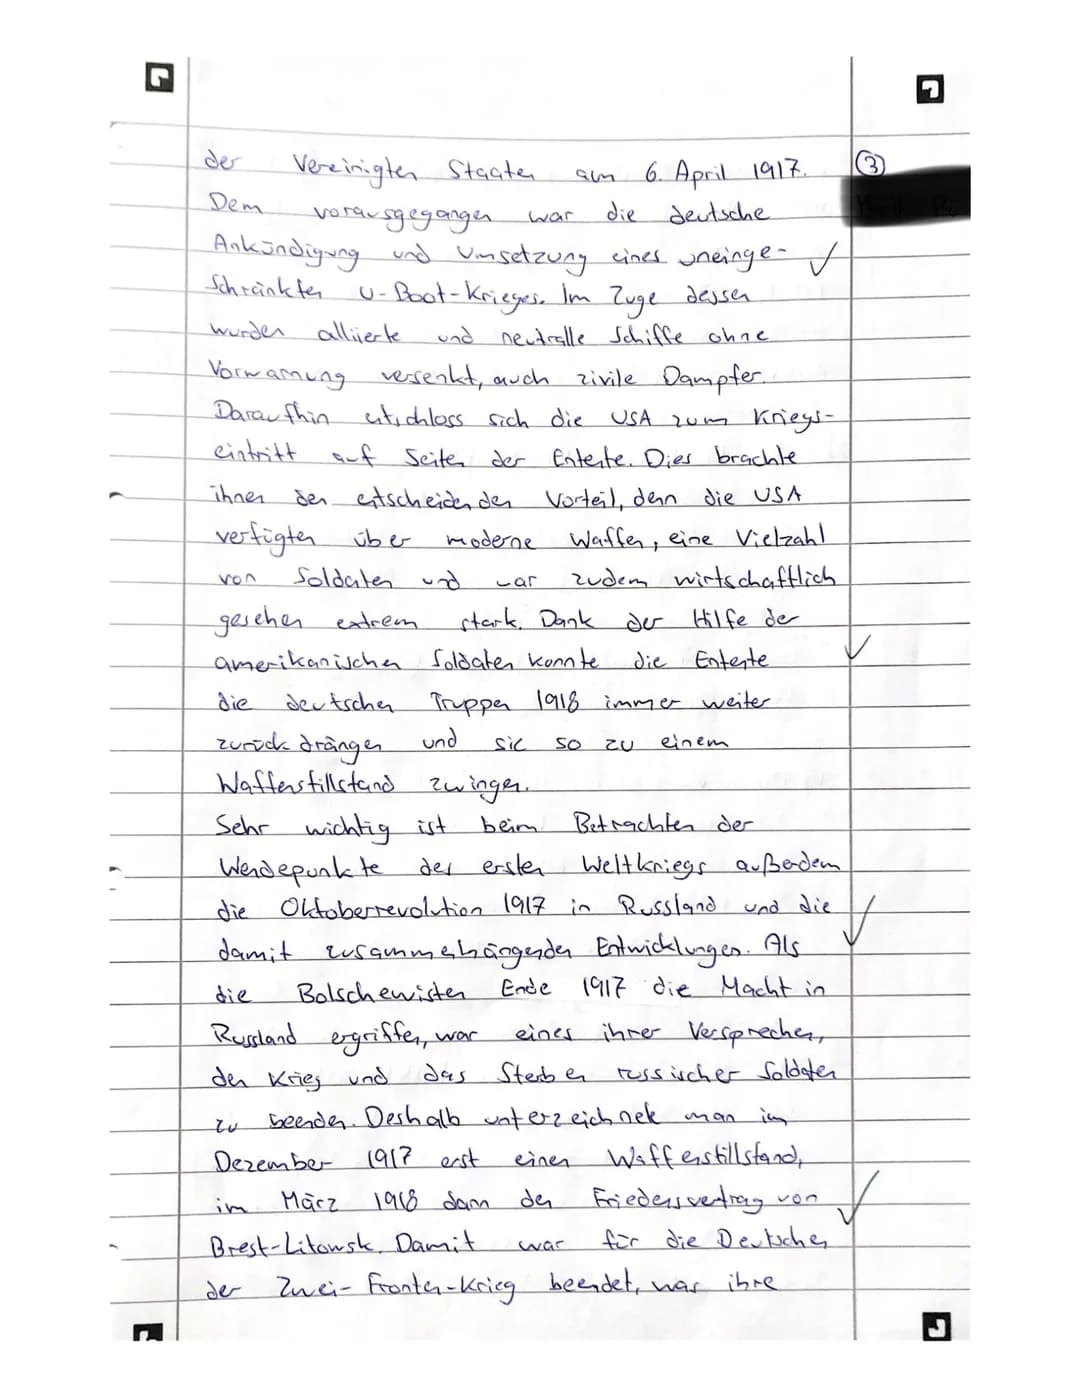 der Vereinigten Staaten am 6. April 1917. ③
Dem vorausgegangen war die deutsche
Ankündigung und Umsetzung eines uneinge-
schränkten U-Boot-Krieges. Im Zuge dessen
wurden alliierte und neutralle Schiffe ohne
Vorwarnung versenkt, auch zivile Dampfer.
Daraufhin entschloss sich die USA zum Kriegs-
eintritt auf Seiten der Entente. Dies brachte
ihnen den entscheidenden Vorteil, denn die USA
verfügten über moderne Waffen, eine Vielzahl
von Soldaten und war zudem wirtschaftlich
gesehen extrem stark. Dank der Hilfe der
amerikanischen Soldaten konnte die Entente
die deutschen Truppen 1918 immer weiter
zurück drängen und sie so zu einem
Waffenstillstand zwingen.
Sehr wichtig ist beim Betrachten der
Wendepunkte des ersten Weltkriegs außerdem
die Oktoberrevolution 1917 in Russland und die
damit zusammenhängenden Entwicklungen. Als
die Bolschewisten Ende 1917 die Macht in
Russland ergriffen, war eines ihrer Versprechen,
den Krieg und das Sterben russischer Soldaten
zu beenden. Deshalb unterzeichnete man im
Dezember 1917 erst einen Waffenstillstand,
im März 1918 dann den Friedensvertrag von
Brest-Litowsk. Damit war für die Deutschen
der Zwei-Fronten-Krieg beendet, was ihre